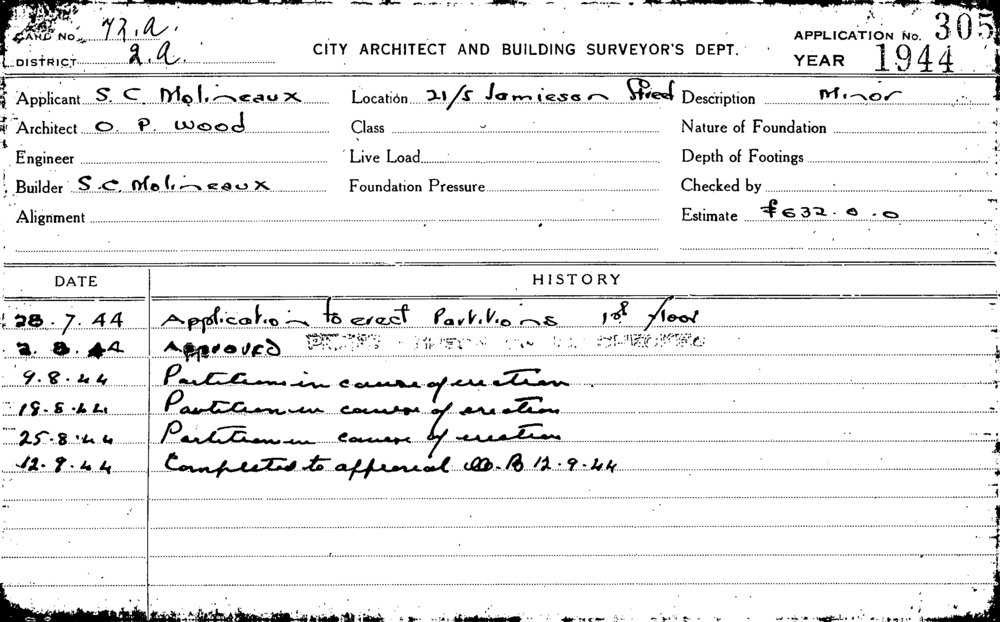 CARD No. 72.a.
APPLICATION No. 305
CITY ARCHITECT AND BUILDING SURVEYOR'S DEPT.
DISTRICT 2.a.
YEAR 1944
Applicant S. C. Molineaux Location 21/5 Jamieson Street Description Minor
Architect O. P. Wood Class Nature of Foundation
Engineer Live Load Depth of Footings
Builder S.C. Molineaux Foundation Pressure Checked by
Alignment Estimate £632.0.0
DATE HISTORY
28.7.44 Application to erect Partitions 1st floor
2.8.44 Approved
9.8.44 Partition in course of erection
18.8.44 Partition in course of erection
25.8.44 Partition in course of erection
12.9.44 Completed to approval 12.9.44